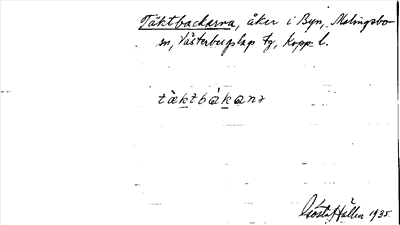 Täktbackarna, åker i Byn, Malingsbo
sn, Västerbergslags fg, Kopp. l.
tàktbákanɔ
Gösta Hallén 1935.